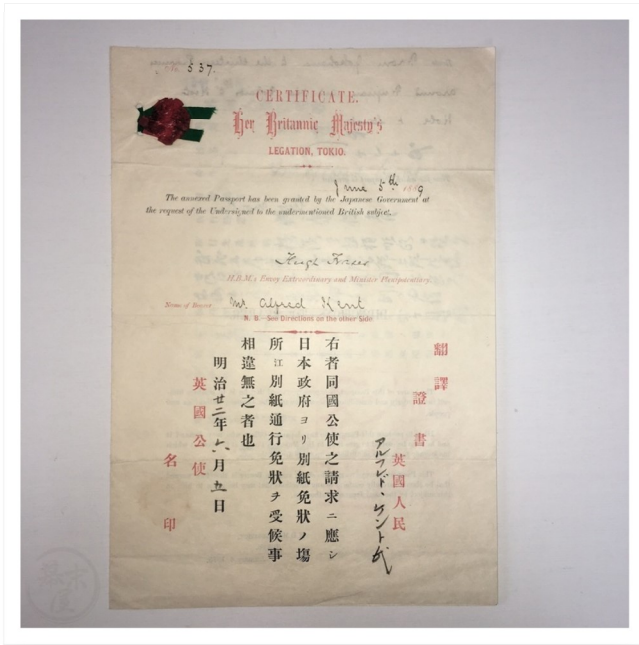 No. 537.
CERTIFICATE.
Her Britannic Majesty's
LEGATION, TOKIO.
June 5th 1889
The annexed Passport has been granted by the Japanese Government at
the request of the Undersigned to the undermentioned British subject.
Hugh Fraser
H.B.M.'s Envoy Extraordinary and Minister Plenipotentiary.
Name of Bearer Mr. Alfred Kent
N. B.—See Directions on the other Side.
飜譯
證書
英國人民
アルフレド・ケント氏
右者同國公使之請求ニ應シ
日本政府ヨリ別紙免狀ノ塲
所江別紙通行免狀ヲ受候事
相違無之者也
明治廿二年六月五日
英國公使
名印